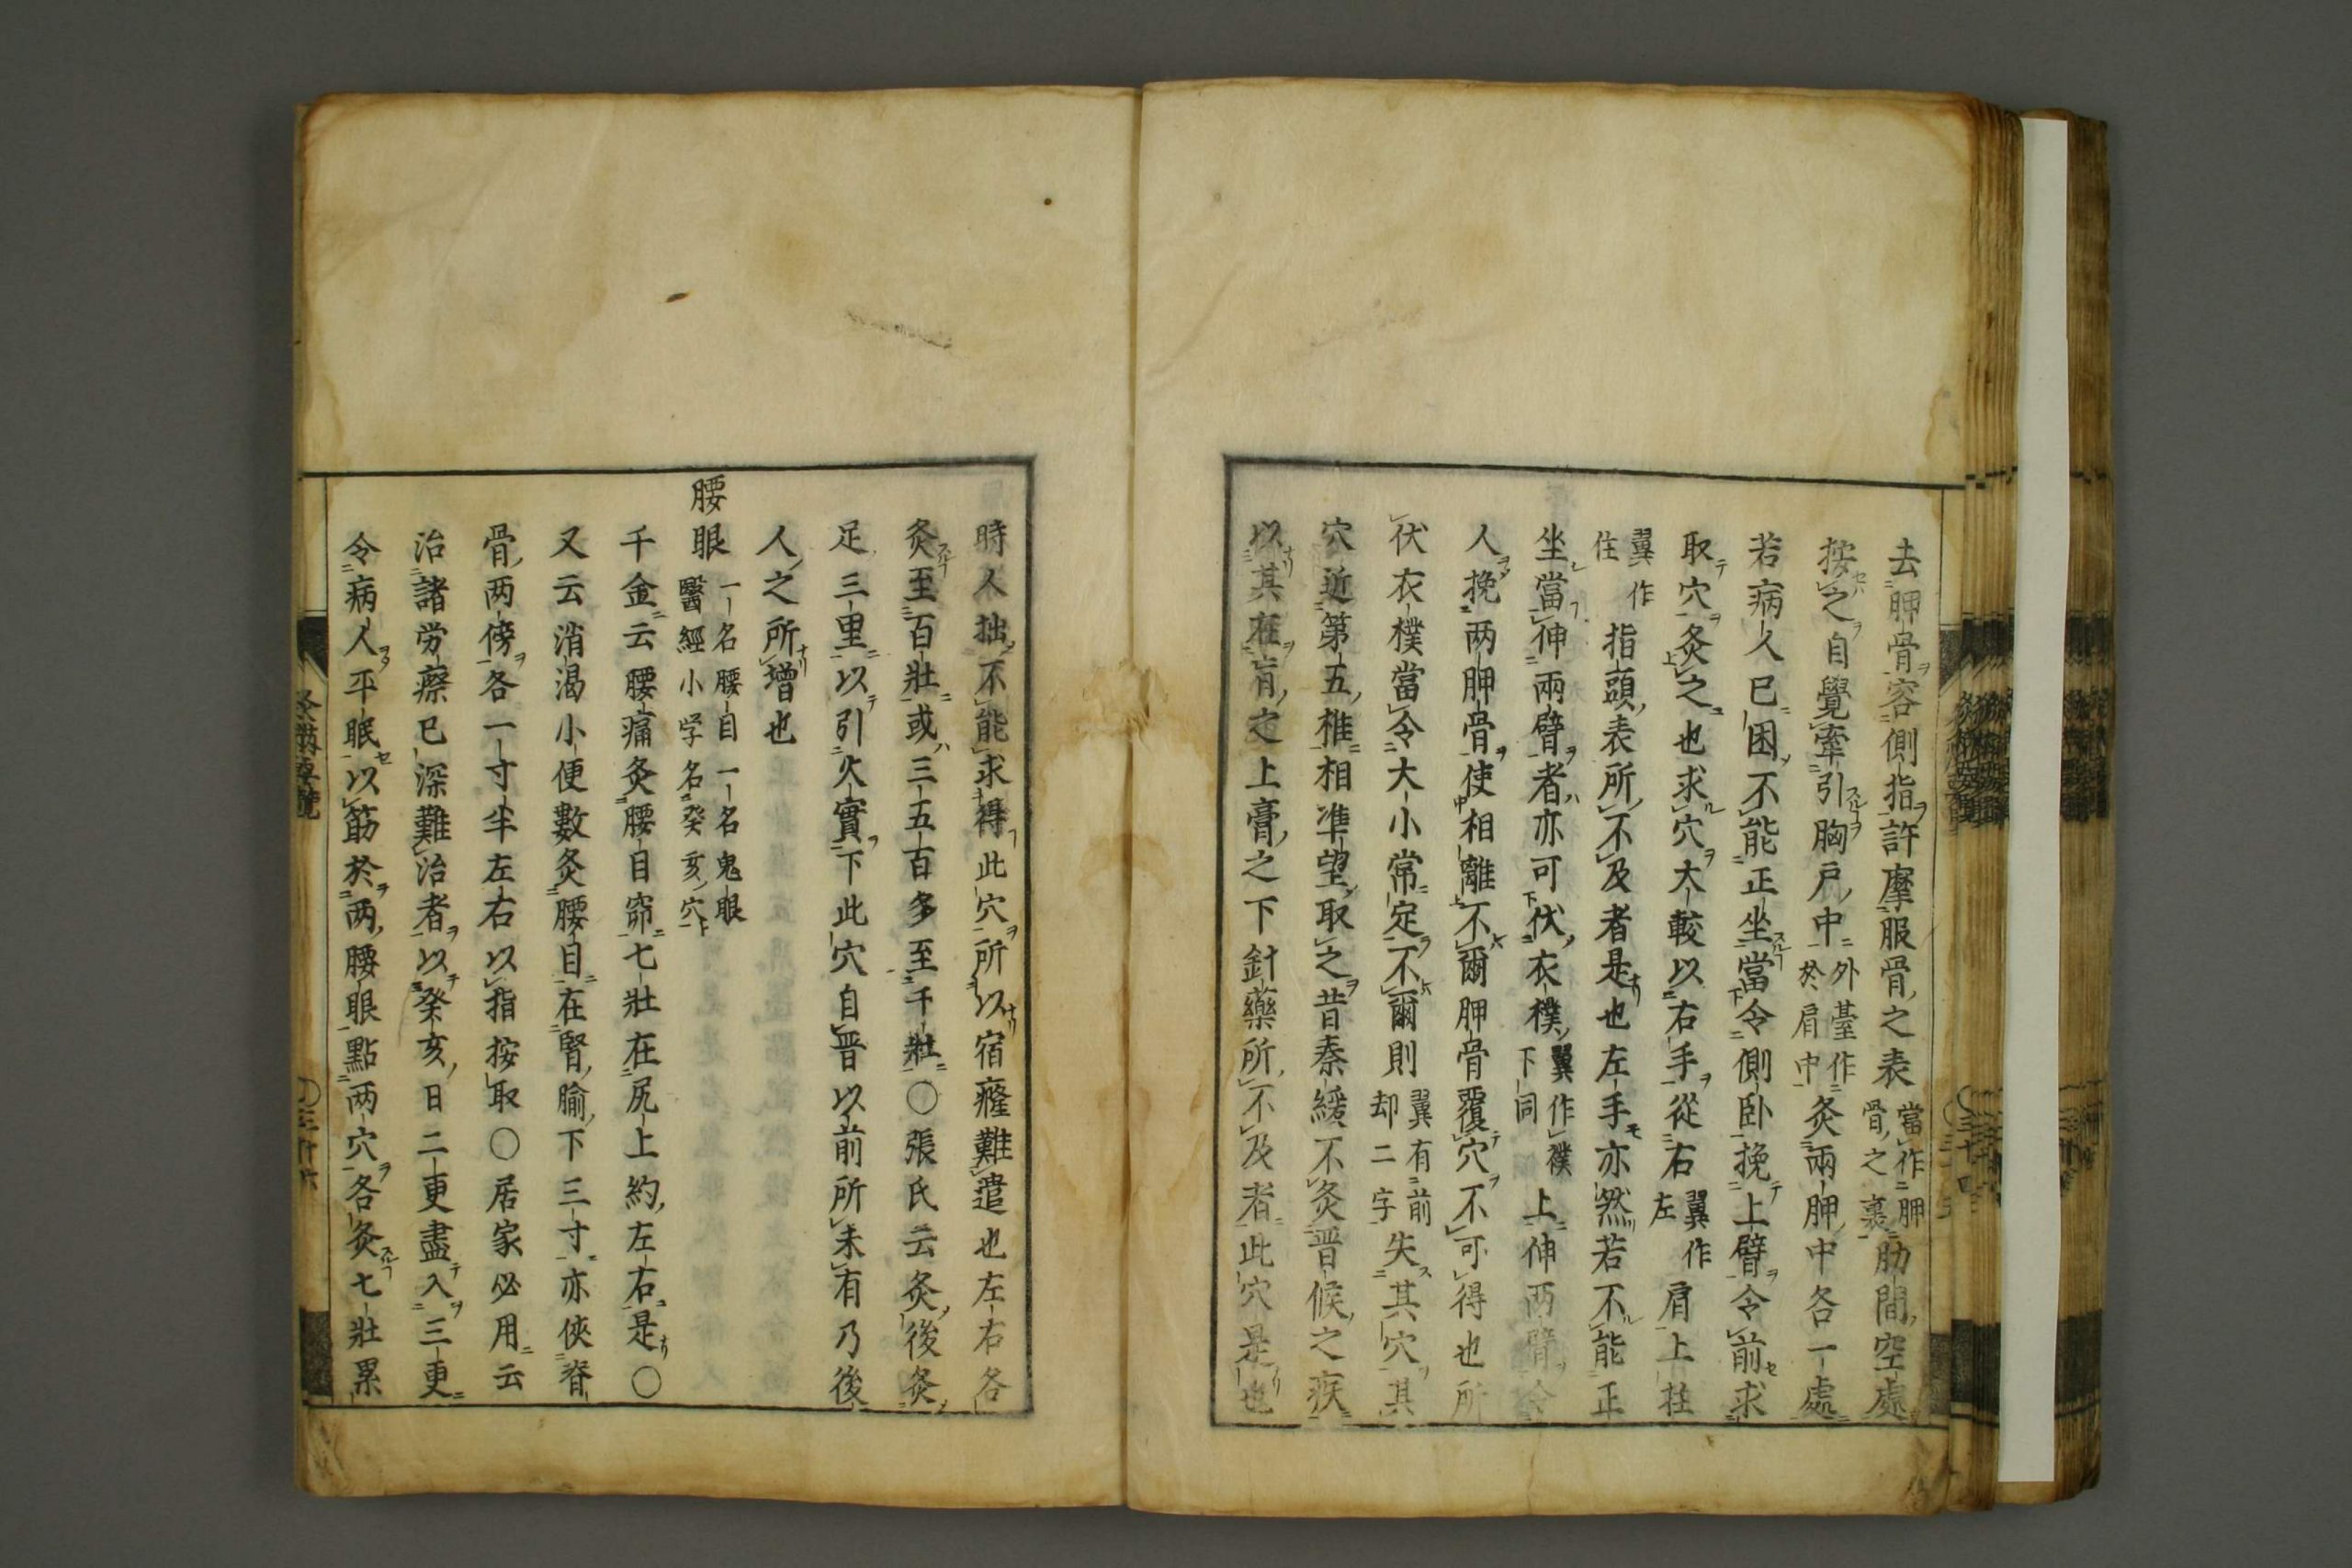 去胛骨容側指許摩服骨之表當作胛骨之裏肋間空處
按之自覺牽引胸戸中外臺作於肩中灸兩胛中各一處
若病人已困不能正坐當令側卧挽上臂令前求
取穴灸之也求穴大較以右手從右翼作左肩上柱
翼作住指頭表所不及者是也左手亦然若不能正
坐當伸兩臂者亦可伏衣襆翼作襆下同上伸两臂令
人挽两胛骨使相離不爾胛骨覆穴不可得也所
伏衣襆當令大小常定不爾則翼有前却二字失其穴其
穴近第五椎相準望取之昔秦緩不灸晋候之疾
以其在肓之上膏之下針藥所不及者此穴是也
時人拙不能求得此穴所以宿癃難遣也左右各
灸至百壯或三五百多至千壯○張氏云灸後灸
足三里以引火實下此穴自晋以前所未有乃後
人之所增也
腰眼一名腰目一名鬼眼醫經小学名癸亥穴
千金云腰痛灸腰目窌七壯在尻上約左右是○
又云消渴小便數灸腰目在腎腧下三寸亦俠脊
骨两傍各一寸半左右以指按取○居家必用云
治諸労瘵已深難治者以癸亥日二更盡入三更
令病人平眠以筯於两腰眼點两穴各灸七壯累